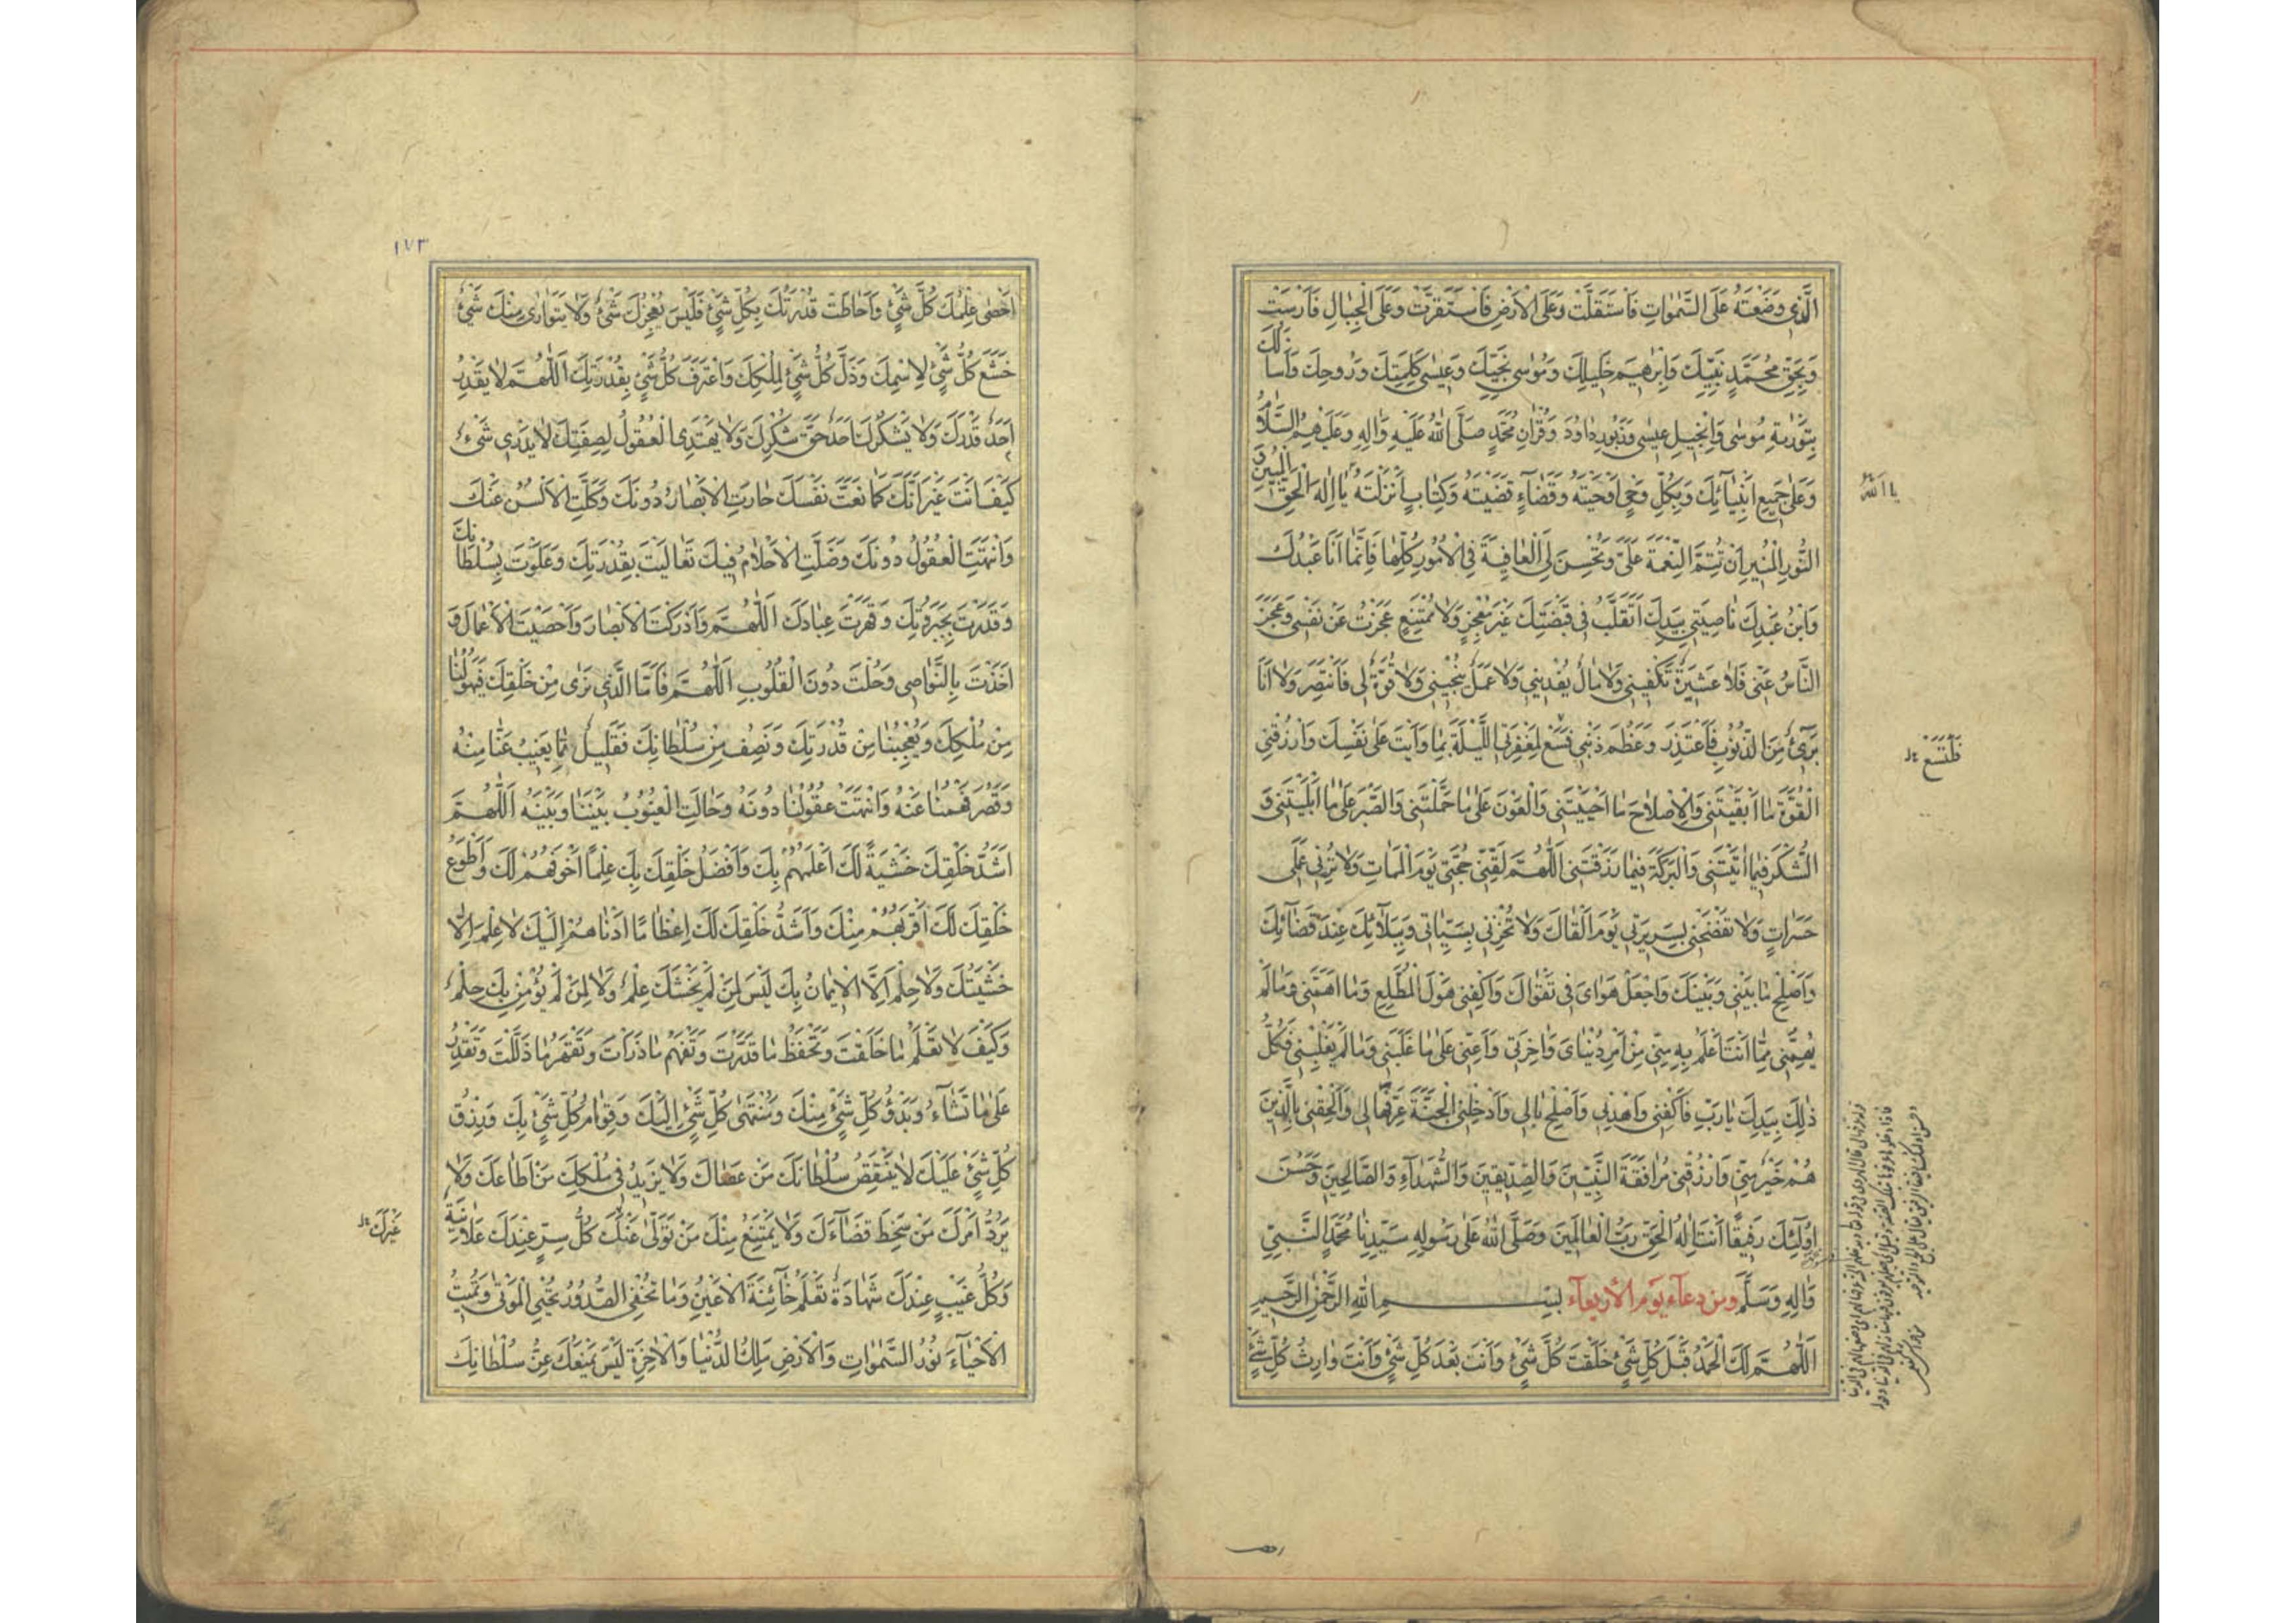 الَّذِي وَضَعْتَهُ عَلَى السَّمٰوَاتِ فَاسْتَقَلَّتْ وَعَلَى الْاَرْضِ فَاسْتَقَرَّتْ وَعَلَى الْجِبَالِ فَاَرْسَتْ
وَبِحَقِّ مُحَمَّدٍ نَبِيِّكَ وَاِبْرٰهِيمَ خَلِيلِكَ وَمُوسٰى نَجِيِّكَ وَعِيسٰى كَلِمَتِكَ وَرُوحِكَ وَاَسْاَلُكَ
بِتَوْرٰيةِ مُوسٰى وَاِنْجِيلِ عِيسٰى وَزَبُورِ دَاوُدَ وَقُرْاٰنِ مُحَمَّدٍ صَلَّى اللّٰهُ عَلَيْهِ وَاٰلِهِ وَعَلَيْهِمُ السَّلَامُ
وَعَلٰى جَمِيعِ اَنْبِيَآئِكَ وَبِكُلِّ وَحْيٍ اَوْحَيْتَهُ وَقَضَآءٍ قَضَيْتَهُ وَكِتَابٍ اَنْزَلْتَهُ يَا اِلٰهَ الْحَقِّ الْمُبِينِ
يا اَللّٰهُ
النُّورِ الْمُنِيرِ اَنْ تُتِمَّ النِّعْمَةَ عَلَيَّ وَتُحْسِنَ لِيَ الْعَافِيَةَ فِي الْاُمُورِ كُلِّهَا فَاِنَّمَا اَنَا عَبْدُكَ
وَابْنُ عَبْدِكَ نَاصِيَتِي بِيَدِكَ اَتَقَلَّبُ فِي قَبْضَتِكَ غَيْرَ مُعْجِزٍ وَلَا مُمْتَنِعٍ عَجَزْتُ عَنْ نَفْسِي وَعَجَزَ
النَّاسُ عَنِّي فَلَا عَشِيرَةٌ تَكْفِينِي وَلَا مَالٌ يُفْدِينِي وَلَا عَمَلٌ يُنْجِينِي وَلَا قُوَّةٌ لِي فَاَنْتَصِرَ وَلَا اَنَا
بَرِيٓءٌ مِنَ الذُّنُوبِ فَاَعْتَذِرَ وَعَظُمَ ذَنْبِي فَسَعْ لِمَغْفِرَتِي اللَّيْلَةَ بِمَا وَاَيْتَ عَلٰى نَفْسِكَ وَارْزُقْنِي
الْقُوَّةَ مَا اَبْقَيْتَنِي وَالْاِصْلَاحَ مَا اَحْيَيْتَنِي وَالْعَوْنَ عَلٰى مَا حَمَّلْتَنِي وَالصَّبْرَ عَلٰى مَا اَبْلَيْتَنِي وَ
الشُّكْرَ فِيمَا اٰتَيْتَنِي وَالْبَرَكَةَ فِيمَا رَزَقْتَنِي اَللّٰهُمَّ لَقِّنِّي حُجَّتِي يَوْمَ الْمَمَاتِ وَلَا تُرِنِي عَمَلِي
حَسَرَاتٍ وَلَا تَفْضَحْنِي بِسَرِيرَتِي يَوْمَ اَلْقَاكَ وَلَا تُخْزِنِي بِسَيِّئَاتِي وَبِبَلَآئِكَ عِنْدَ قَضَآئِكَ
وَاَصْلِحْ مَا بَيْنِي وَبَيْنَكَ وَاجْعَلْ هَوَايَ فِي تَقْوَاكَ وَاكْفِنِي هَوْلَ الْمُطَّلَعِ وَمَا اَهَمَّنِي وَمَا لَمْ
يُهِمَّنِي مِمَّا اَنْتَ اَعْلَمُ بِهِ مِنِّي مِنْ اَمْرِ دُنْيَايَ وَاٰخِرَتِي وَاَعِنِّي عَلٰى مَا غَلَبَنِي وَمَا لَمْ يَغْلِبْنِي فَكُلُّ
ذٰلِكَ بِيَدِكَ يَا رَبِّ فَاكْفِنِي وَاهْدِنِي وَاَصْلِحْ بَالِي وَاَدْخِلْنِي الْجَنَّةَ عَرِّفْهَا لِي وَاَلْحِقْنِي بِالَّذِينَ
هُمْ خَيْرٌ مِنِّي وَارْزُقْنِي مُرَافَقَةَ النَّبِيِّينَ وَالصِّدِّيقِينَ وَالشُّهَدَآءِ وَالصَّالِحِينَ وَحَسُنَ
اُولٰٓئِكَ رَفِيقًا اَنْتَ اِلٰهُ الْحَقِّ رَبُّ الْعَالَمِينَ وَصَلَّى اللّٰهُ عَلٰى رَسُولِهِ سَيِّدِنَا مُحَمَّدٍ النَّبِيِّ
وَاٰلِهِ وَسَلَّمَ ومن دعآء يوم الأربعآء بِسْمِ اللّٰهِ الرَّحْمٰنِ الرَّحِيمِ
اَللّٰهُمَّ لَكَ الْحَمْدُ قَبْلَ كُلِّ شَيْءٍ خَلَقْتَ كُلَّ شَيْءٍ وَاَنْتَ بَعْدَ كُلِّ شَيْءٍ وَاَنْتَ وَارِثُ كُلِّ شَيْءٍ
١٧٣
اَحْصٰى عِلْمُكَ كُلَّ شَيْءٍ وَاَحَاطَتْ قُدْرَتُكَ بِكُلِّ شَيْءٍ فَلَيْسَ يُعْجِزُكَ شَيْءٌ وَلَا يَتَوَارٰى مِنْكَ شَيْءٌ
خَشَعَ كُلُّ شَيْءٍ لِاسْمِكَ وَذَلَّ كُلُّ شَيْءٍ لِمُلْكِكَ وَاعْتَرَفَ كُلُّ شَيْءٍ بِقُدْرَتِكَ اَللّٰهُمَّ لَا يَقْدِرُ
اَحَدٌ قَدْرَكَ وَلَا يَشْكُرُكَ اَحَدٌ حَقَّ شُكْرِكَ وَلَا يَهْتَدِي الْعُقُولُ لِصِفَتِكَ لَا يَدْرِي شَيْءٌ
كَيْفَ اَنْتَ غَيْرَ اَنَّكَ كَمَا نَعَتَّ نَفْسَكَ حَارَتِ الْاَبْصَارُ دُونَكَ وَكَلَّتِ الْاَلْسُنُ عَنْكَ
وَانْتَهَتِ الْعُقُولُ دُونَكَ وَضَلَّتِ الْاَحْلَامُ فِيكَ تَعَالَيْتَ بِقُدْرَتِكَ وَعَلَوْتَ بِسُلْطَانِكَ
وَقَدَرْتَ بِجَبَرُوتِكَ وَقَهَرْتَ عِبَادَكَ اَللّٰهُمَّ وَاَدْرَكْتَ الْاَبْصَارَ وَاَحْصَيْتَ الْاَعْمَالَ وَ
اَخَذْتَ بِالنَّوَاصِي وَحُلْتَ دُونَ الْقُلُوبِ اَللّٰهُمَّ فَاَمَّا الَّذِي نَرٰى مِنْ خَلْقِكَ فَيَهُولُنَا
مِنْ مُلْكِكَ وَيُعْجِبُنَا مِنْ قُدْرَتِكَ وَنَصِفُ مِنْ سُلْطَانِكَ فَقَلِيلٌ مِمَّا يَغِيبُ عَنَّا مِنْهُ
وَقَصُرَ فَهْمُنَا عَنْهُ وَانْتَهَتْ عُقُولُنَا دُونَهُ وَحَالَتِ الْغُيُوبُ بَيْنَنَا وَبَيْنَهُ اَللّٰهُمَّ
اَشَدُّ خَلْقِكَ خَشْيَةً لَكَ اَعْلَمُهُمْ بِكَ وَاَفْضَلُ خَلْقِكَ بِكَ عِلْمًا اَخْوَفُهُمْ لَكَ وَاَطْوَعُ
خَلْقِكَ لَكَ اَقْرَبُهُمْ مِنْكَ وَاَشَدُّ خَلْقِكَ لَكَ اِعْظَامًا اَدْنَاهُمْ اِلَيْكَ لَا عِلْمَ اِلَّا
خَشْيَتُكَ وَلَا حِلْمَ اِلَّا الْاِيمَانُ بِكَ لَيْسَ لِمَنْ لَمْ يَخْشَكَ عِلْمٌ وَلَا لِمَنْ لَمْ يُؤْمِنْ بِكَ حِلْمٌ
وَكَيْفَ لَا تَعْلَمُ مَا خَلَقْتَ وَتَحْفَظُ مَا قَدَّرْتَ وَتَفْهَمُ مَا ذَرَأْتَ وَتَقْهَرُ مَا ذَلَّلْتَ وَتَقْدِرُ
عَلٰى مَا تَشَآءُ وَبَدْؤُ كُلِّ شَيْءٍ مِنْكَ وَمُنْتَهٰى كُلِّ شَيْءٍ اِلَيْكَ وَقِوَامُ كُلِّ شَيْءٍ بِكَ وَرِزْقُ
كُلِّ شَيْءٍ عَلَيْكَ لَا يَنْقُصُ سُلْطَانَكَ مَنْ عَصَاكَ وَلَا يَزِيدُ فِي مُلْكِكَ مَنْ اَطَاعَكَ وَلَا
يَرُدُّ اَمْرَكَ مَنْ سَخِطَ قَضَآءَكَ وَلَا يَمْتَنِعُ مِنْكَ مَنْ تَوَلّٰى عَنْكَ كُلُّ سِرٍّ عِنْدَكَ عَلَانِيَةٌ
غَيْرَكَ
وَكُلُّ غَيْبٍ عِنْدَكَ شَهَادَةٌ تَعْلَمُ خَآئِنَةَ الْاَعْيُنِ وَمَا تُخْفِي الصُّدُورُ تُحْيِي الْمَوْتٰى وَتُمِيتُ
الْاَحْيَآءَ نُورُ السَّمٰوَاتِ وَالْاَرْضِ مَلِكُ الدُّنْيَا وَالْاٰخِرَةِ لَيْسَ يَمْنَعُكَ عِزُّ سُلْطَانِكَ